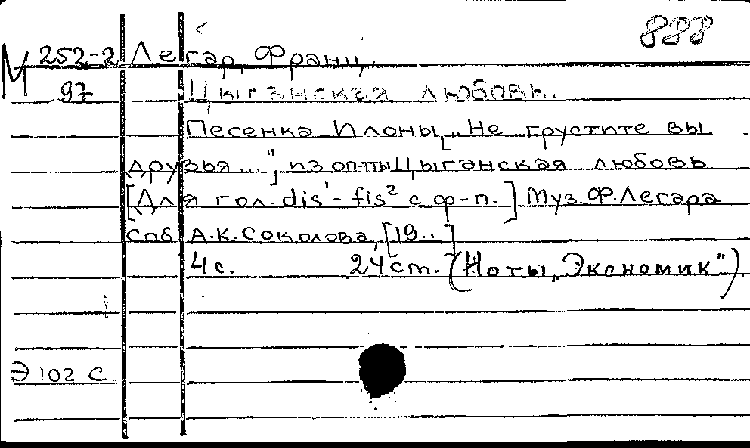 888
М 252-2 Легар, Франц.
97 Цыганская любовь.
Песенка Илоны „Не грустите вы
друзья...", из оп-ты Цыганская любовь
[Для гол. dis¹- fis² с ф-п.] Муз. Ф. Легара
Спб А.К. Соколова, [19..]
4 с. 24 cm. (Ноты „Экономик")
Э 102 С